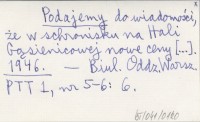 Podajemy do wiadomości,
że w schronisku na Hali
Gąsienicowej nowe ceny [...].
1946. — Biul. Oddz. Warsz.
PTT 1, nr 5-6: 6.